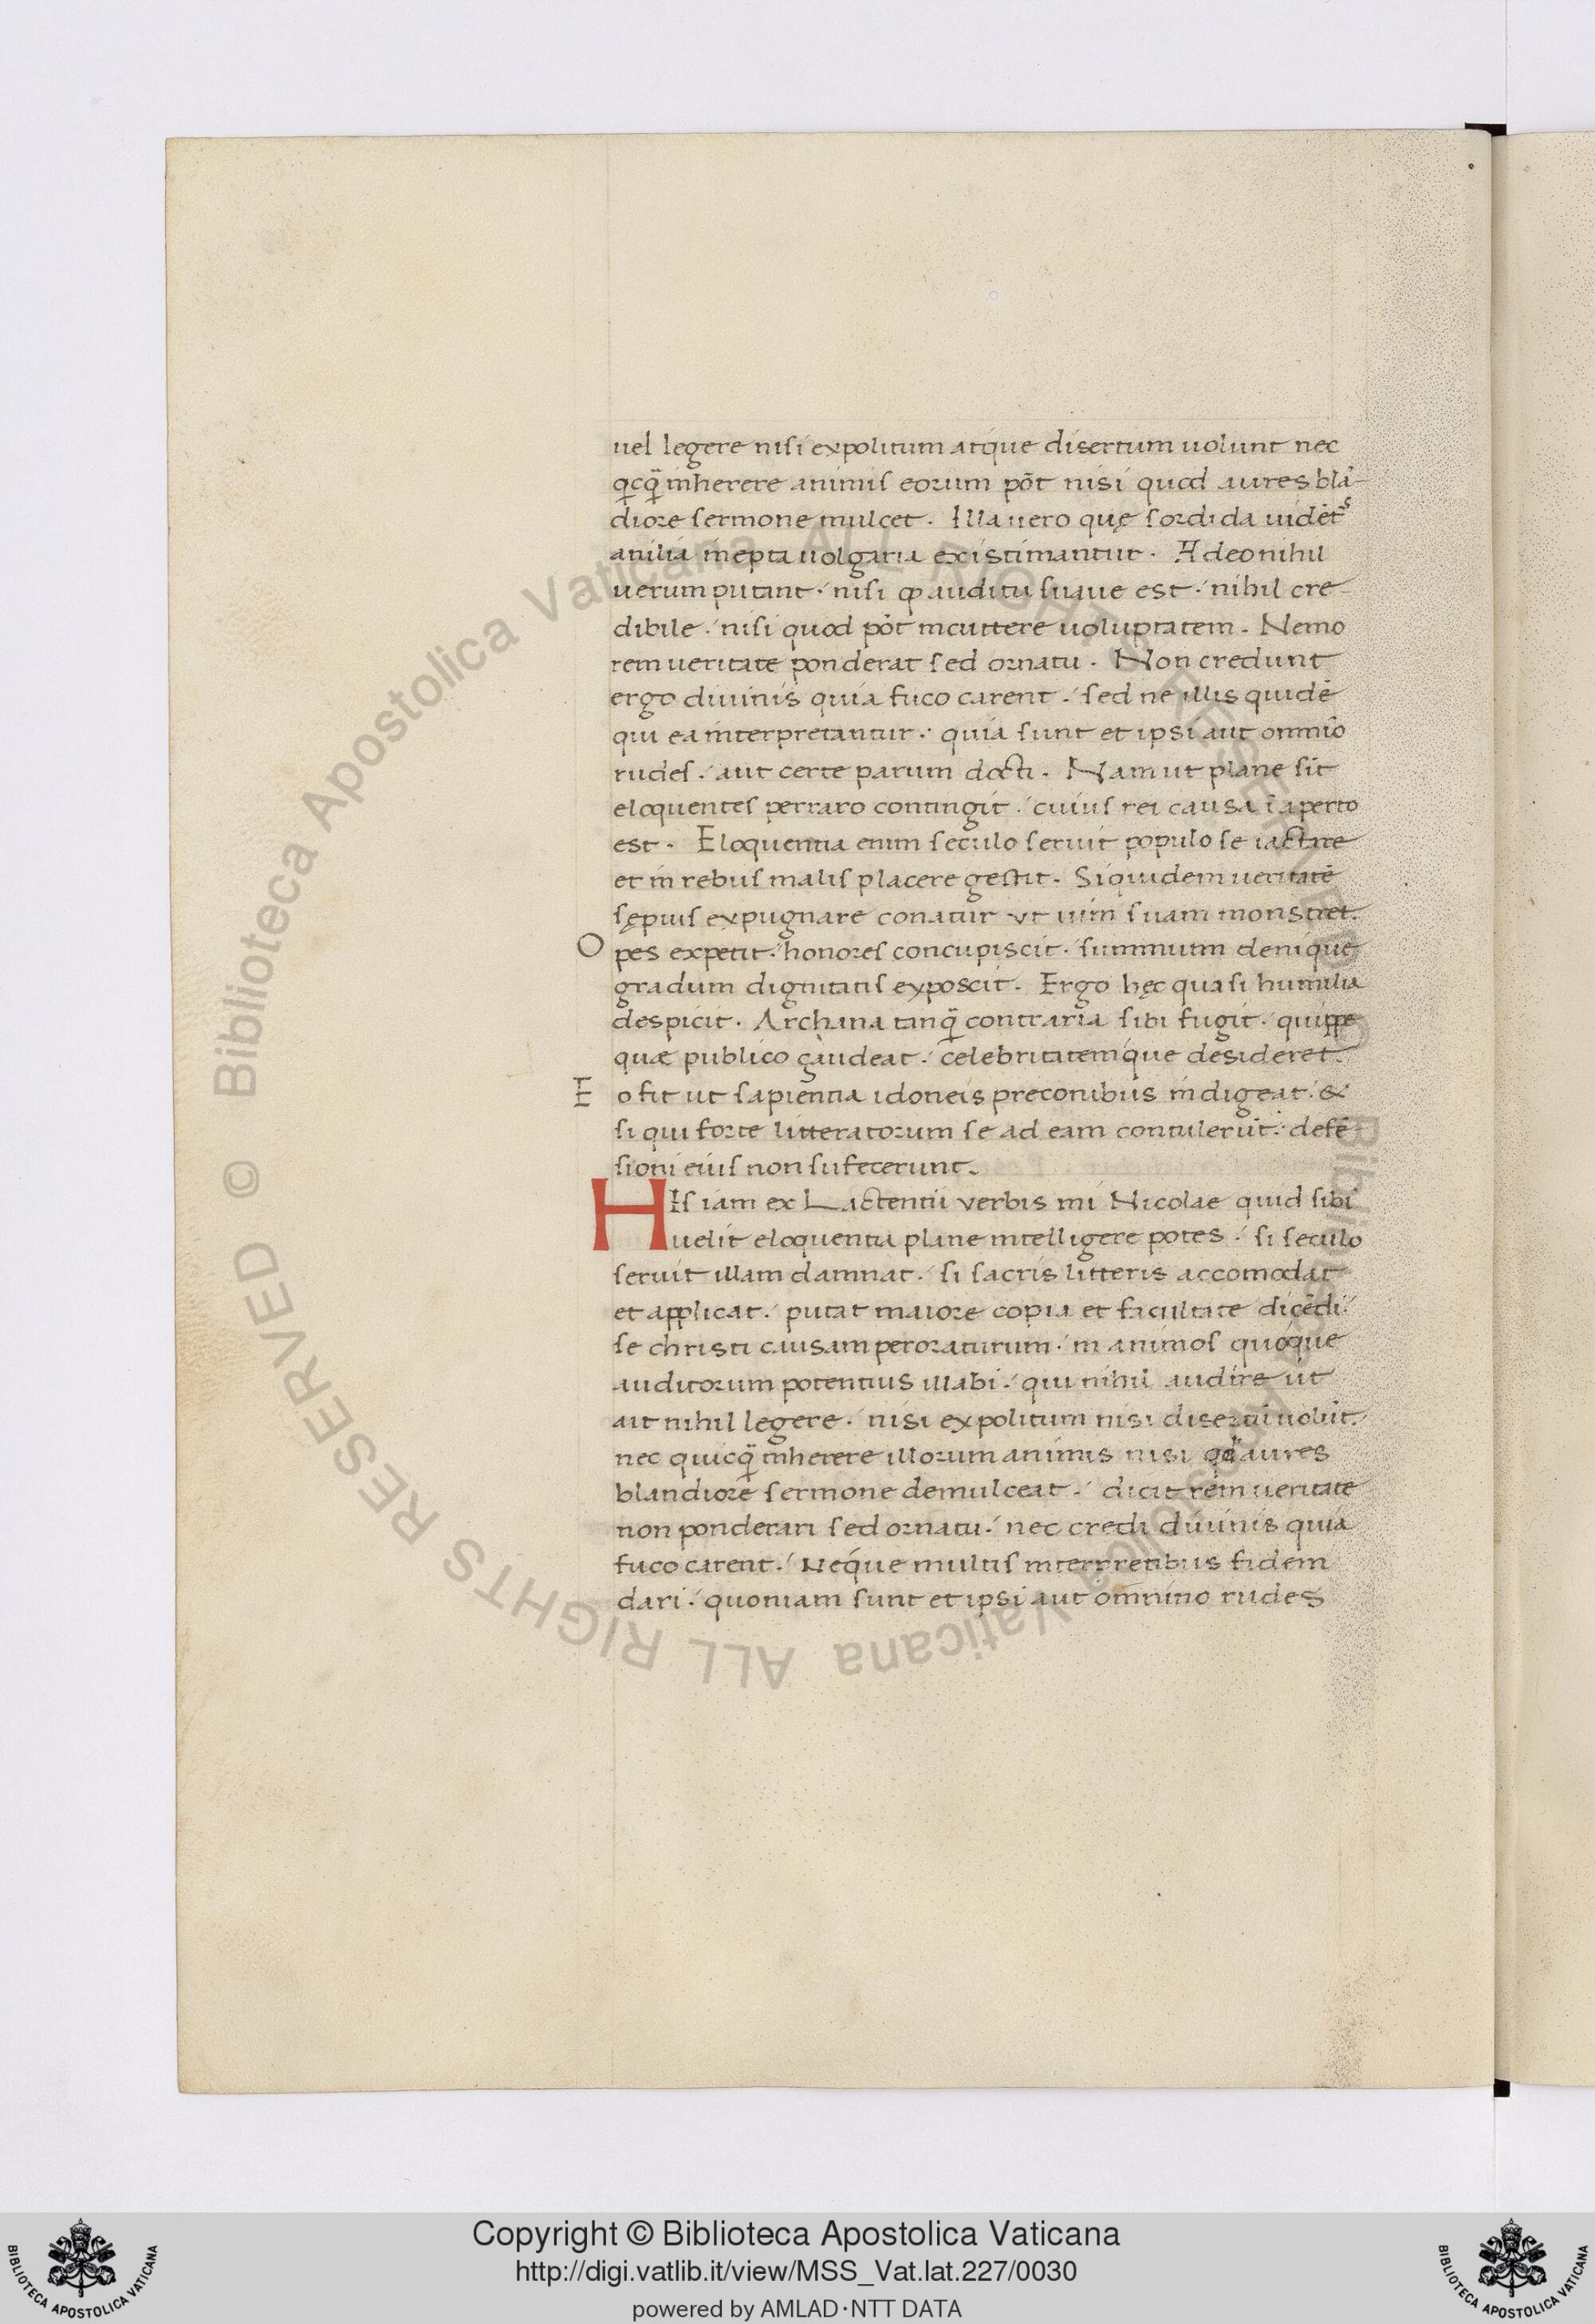 uel legere nisi expolitum atque disertum uolunt nec
qicq̃ inherere animis eorum pōt nisi quod aures blā-
diore sermone mulcet. Illa uero quę sordida uidēts
anilia inepta uolgaria existimantur. Adeo nihil
uerum putant. nisi qđ auditu suaue est. nihil cre-
dibile. nisi quod pōt incuttere uoluptatem. Nemo
rem ueritate ponderat sed ornatu. Non credunt
ergo diuinis quia fuco carent. sed ne illis quidē
qui ea interpretantur. quia sunt et ipsi aut omnīo
rudes. aut certe parum docti. Nam ut plane sīt
eloquentes perraro contingit. cuius rei causa ī aperto
est. Eloquentia enim seculo seruit populo se iactare
et in rebus malis placere gestit. Siquidem ueritatē
sępius expugnare conatur vt uim suam monstret.
Opes expetit. honores concupiscit. summum denique
gradum dignitatis exposcit. Ergo hęc quasi humilia
despicit. Archana tanq̃ contraria sibi fugit. quippe
quæ publico gaudeat. celebritatemque desideret.
Eo fit ut sapientia idoneis preconibus indigeat. &
si qui forte litteratorum se ad eam contulerūt. defē
sioni eius non sufecerunt.
HIs iam ex Lactentii verbis mi Nicolae quid sibi
uelit eloquentia plane intelligere potes. si seculo
seruit illam damnat. si sacris litteris accomodat
et applicat. putat maiore copia et facultate dicēdi
se christi causam peroraturum. in animos quoque
auditorum potentius illabi. qui nihil audire ut
ait nihil legere. nisi expolitum nisi disertū uolūt.
nec quicq̃ inherere illorum animis nisi qđ aures
blandiore sermone demulceat. dicit rem ueritate
non ponderari sed ornatu. nec credi diuinis quia
fuco carent. Neque multis interpretibus fidem
dari. quoniam sunt et ipsi aut omnino rudes
© Biblioteca Apostolica Vaticana ALL RIGHTS RESERVED © Biblioteca Apostolica Vaticana ALL RIGHTS RESERVED
Copyright © Biblioteca Apostolica Vaticana
http://digi.vatlib.it/view/MSS_Vat.lat.227/0030
powered by AMLAD·NTT DATA
BIBLIOTECA APOSTOLICA VATICANA
BIBLIOTECA APOSTOLICA VATICANA